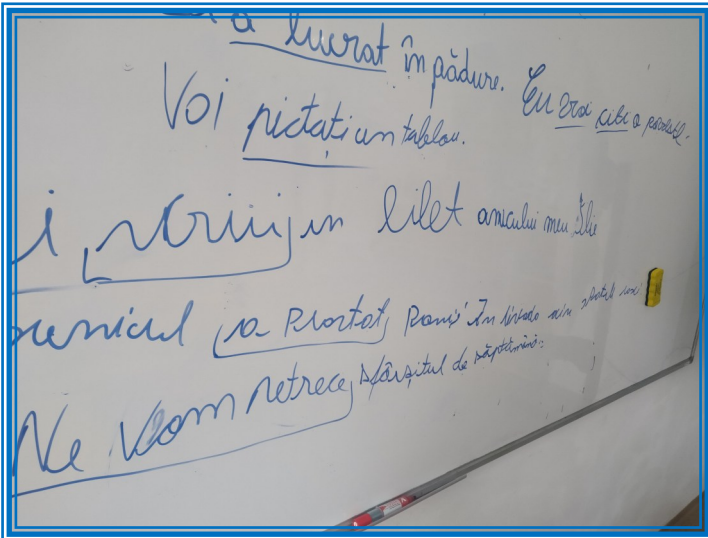 a lucrat în pădure. Eu voi citi o poveste.
Voi pictați un tablou.
i scrii un bilet amicului meu, Ilie
bunicul a plantat pomi în livada din
Ne vom petrece sfârșitul de săptămînă.